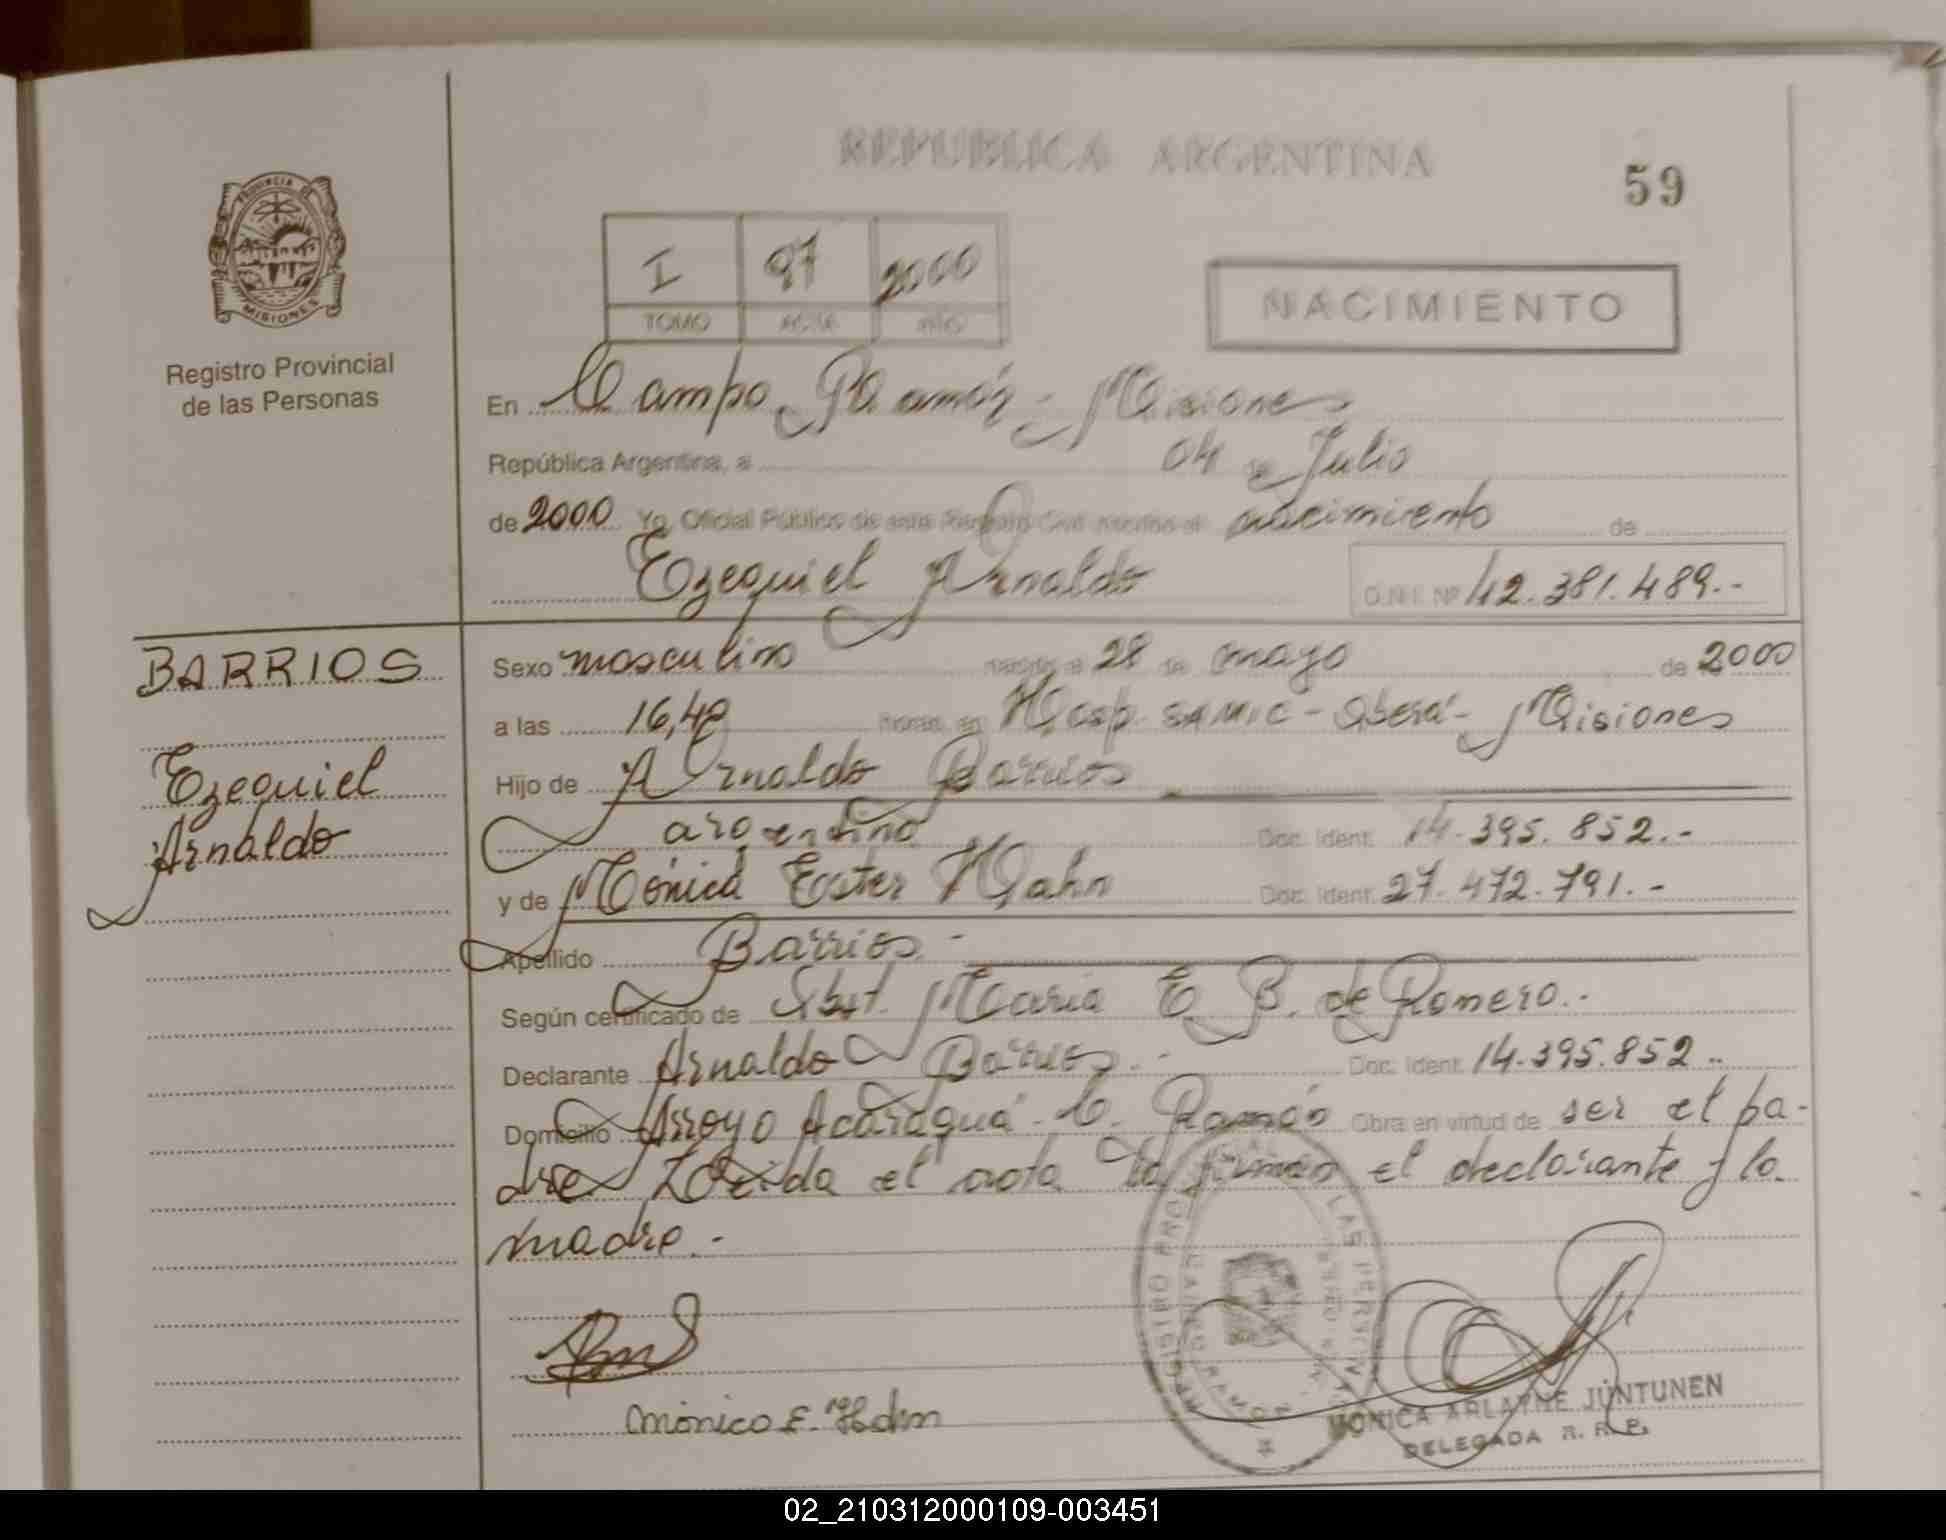 REPUBLICA ARGENTINA
59
PROVINCIA DE
MISIONES
Registro Provincial
de las Personas
I 97 2000
TOMO ACTA AÑO
NACIMIENTO
En Campo Ramón - Misiones
República Argentina, a 04 de Julio
de 2000 Yo, Oficial Público de este Registro Civil inscribo el nacimiento de
Ezequiel Arnaldo D.N.I. Nº 42.381.489.-
BARRIOS
Ezequiel
Arnaldo
Sexo masculino nacido el 28 de mayo de 2000
a las 16,40 horas en Hosp. SAMIC - Oberá - Misiones
Hijo de Arnaldo Barrios
argentino Doc. Ident. 14.395.852.-
y de Mónica Ester Hahn Doc. Ident. 27.472.791.-
Apellido Barrios.-
Según certificado de Obst. María E. B. de Romero.-
Declarante Arnaldo Barrios.- Doc. Ident. 14.395.852..
Domicilio Arroyo Acaraguá - C. Ramón Obra en virtud de ser el pa-
dre Leída el acta la firman el declarante y la
madre.-
Mónica E. Hahn
MONICA ARLAYNE JUNTUNEN
DELEGADA R. P. P.
02_210312000109-003451